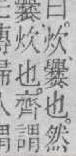 曰炊爨也然
爨炊也齊謂